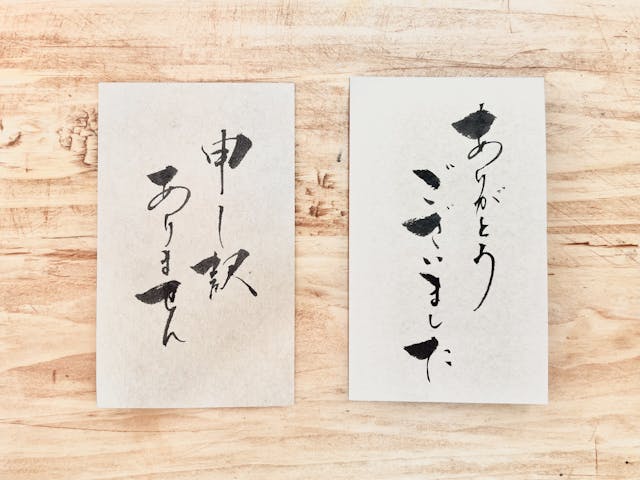 申し訳
ありません
ありがとう
ございました